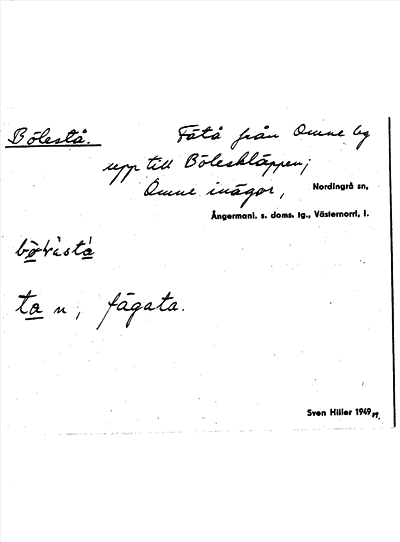 Bölestå. Fåtå från Omne by
upp till Böleskläppen;
Omne inägor, Nordingrå sn,
Ångermanl. s. doms. tg., Västernorrl, l.
ta n, fägata.
Sven Hiller 1949